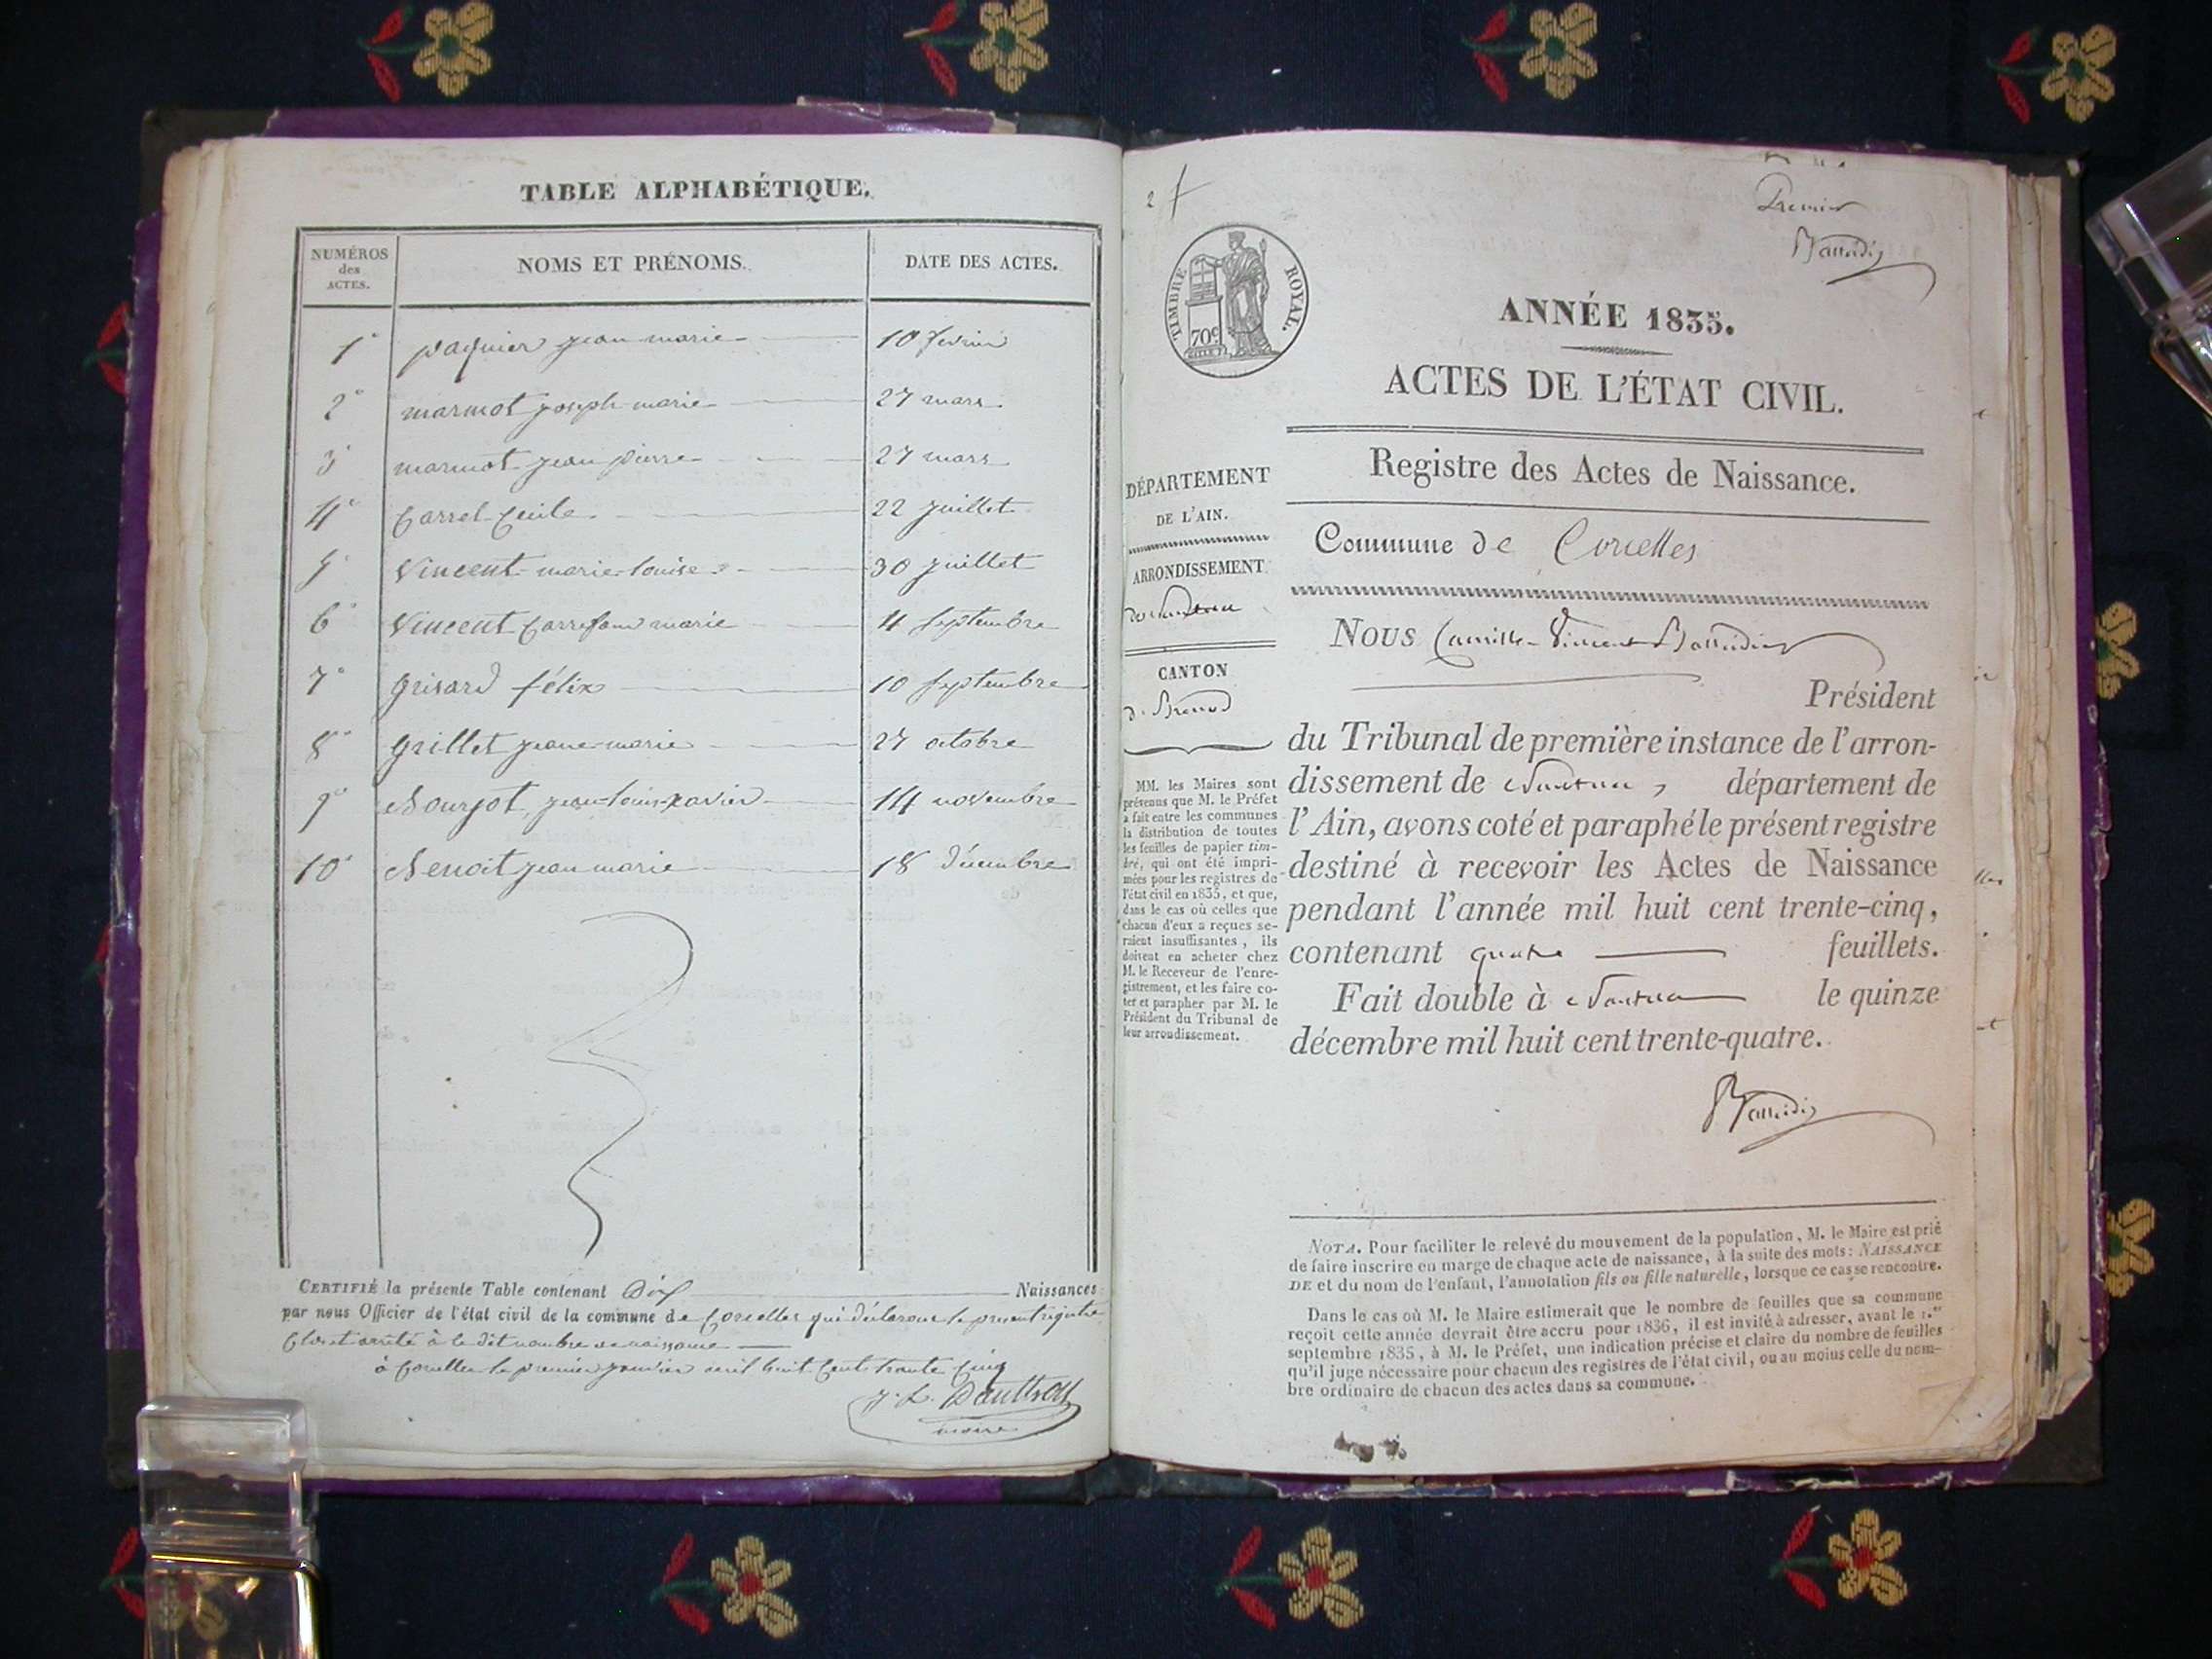 TABLE ALPHABÉTIQUE.
NUMÉROS
des
ACTES.
NOMS ET PRÉNOMS.
DATE DES ACTES.
1° paquier jean marie 10 fevrier
2° marmot joseph marie 27 mars
3° marmot jean pierre 27 mars
4° Carrel Cecile 22 juillet
5° Vincent marie louise 30 juillet
6° Vincent marie 4 septembre
7° grisard félix 10 septembre
8° grillet jeane marie 27 octobre
9° Bourjot jean louis xavier 14 novembre
10° Benoit jean marie 18 décembre
CERTIFIÉ la présente Table contenant Dix Naissances
par nous Officier de l'état civil de la commune de Corcelles qui déclarons le present registre
Clos et arrêté à le dit nombre de naissance
à Corcelles le premier janvier mil huit Cent trente Cinq
J. L.
maire
2
Premier
TIMBRE ROYAL.
70c
ANNÉE 1835.
ACTES DE L'ÉTAT CIVIL.
Registre des Actes de Naissance.
Commune de Corcelles
DÉPARTEMENT
DE L'AIN.
ARRONDISSEMENT
de Nantua
CANTON
d. Brenod
MM. les Maires sont
prévenus que M. le Préfet
a fait entre les communes
la distribution de toutes
les feuilles de papier tim-
bré, qui ont été impri-
mées pour les registres de
l'état civil en 1835, et que,
dans le cas où celles que
chacun d'eux a reçues se-
raient insuffisantes, ils
doivent en acheter chez
M. le Receveur de l'enre-
gistrement, et les faire co-
ter et parapher par M. le
Président du Tribunal de
leur arrondissement.
NOUS Camille Vincent
Président
du Tribunal de première instance de l'arron-
dissement de Nantua, département de
l'Ain, avons coté et paraphé le présent registre
destiné à recevoir les Actes de Naissance
pendant l'année mil huit cent trente-cinq,
contenant quatre feuillets.
Fait double à Nantua le quinze
décembre mil huit cent trente-quatre.
NOTA. Pour faciliter le relevé du mouvement de la population, M. le Maire est prié
de faire inscrire en marge de chaque acte de naissance, à la suite des mots: NAISSANCE
DE et du nom de l'enfant, l'annotation fils ou fille naturelle, lorsque ce cas se rencontre.
Dans le cas où M. le Maire estimerait que le nombre de feuilles que sa commune
reçoit cette année devrait être accru pour 1836, il est invité à adresser, avant le 1.er
septembre 1835, à M. le Préfet, une indication précise et claire du nombre de feuilles
qu'il juge nécessaire pour chacun des registres de l'état civil, ou au moins celle du nom-
bre ordinaire de chacun des actes dans sa commune.